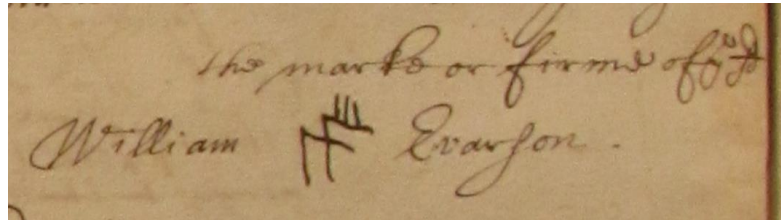 the marke or firme of ye sd
William Evarson .